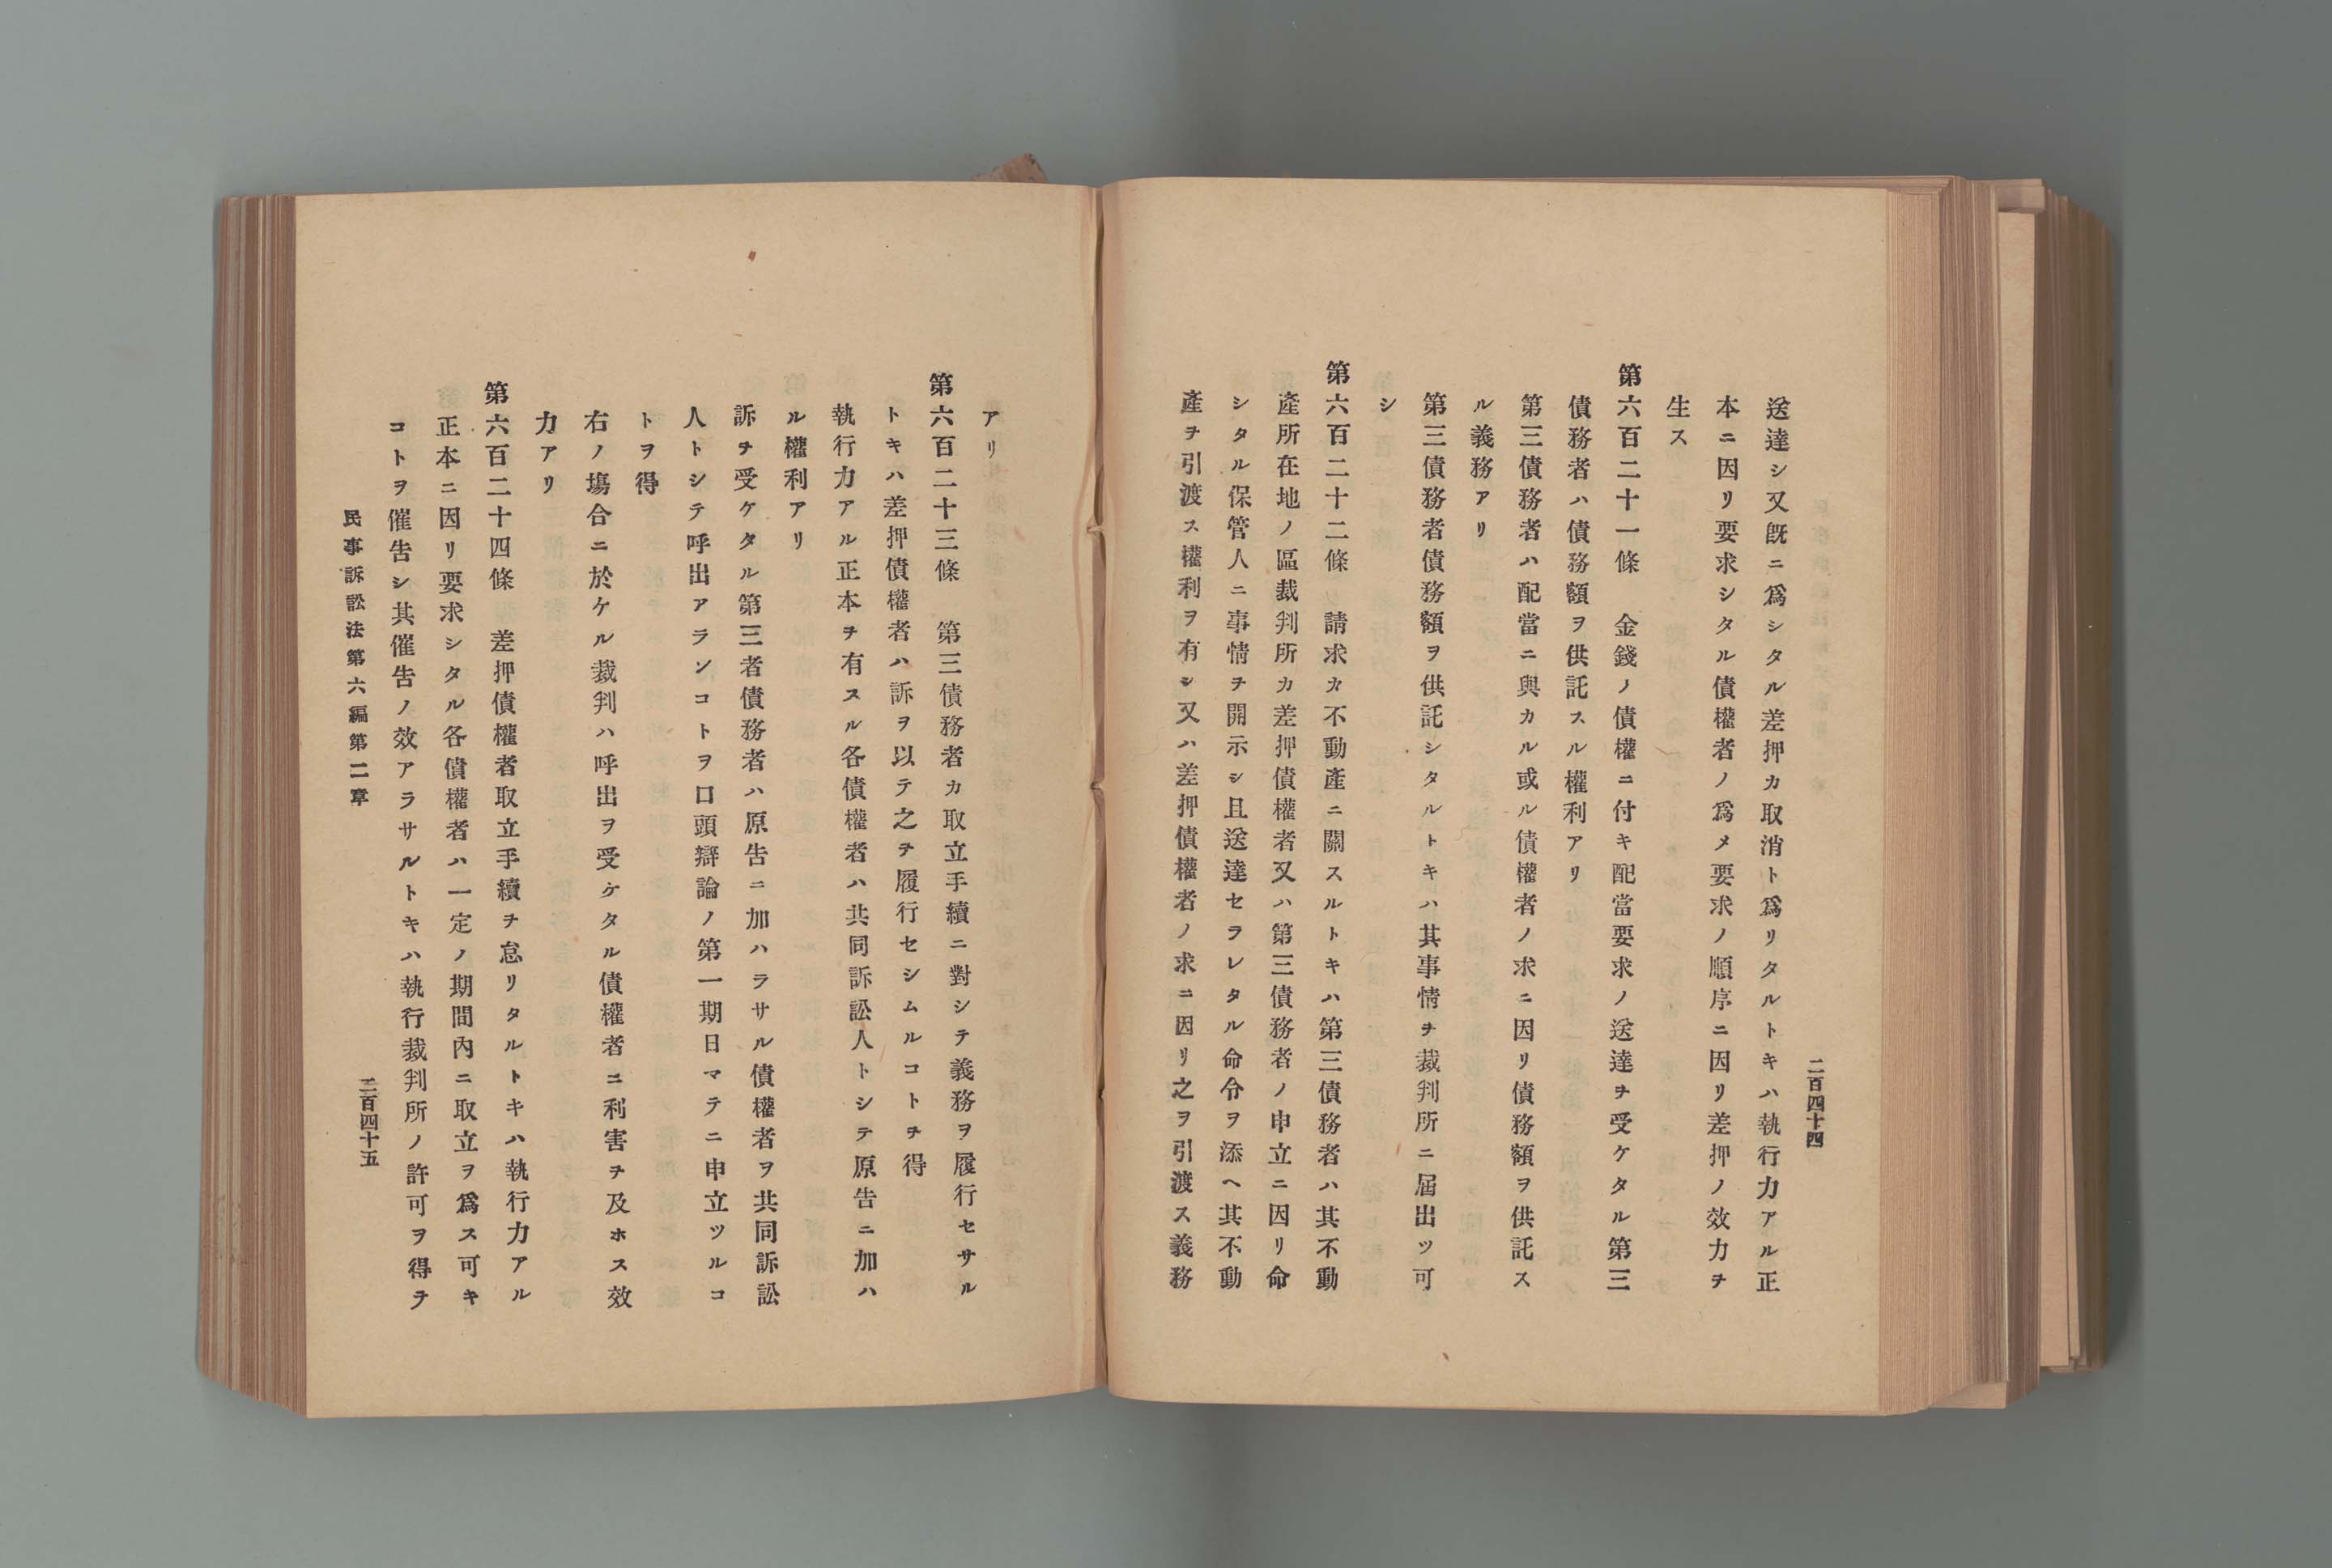 二百四十四
送達シ又既ニ爲シタル差押カ取消ト爲リタルトキハ執行力アル正
本ニ因リ要求シタル債權者ノ爲メ要求ノ順序ニ因リ差押ノ效力ヲ
生ス
第六百二十一條　金錢ノ債權ニ付キ配當要求ノ送達ヲ受ケタル第三
債務者ハ債務額ヲ供託スル權利アリ
第三債務者ハ配當ニ與カル或ル債權者ノ求ニ因リ債務額ヲ供託ス
ル義務アリ
第三債務者債務額ヲ供託シタルトキハ其事情ヲ裁判所ニ屆出ツ可
シ
第六百二十二條　請求カ不動產ニ關スルトキハ第三債務者ハ其不動
產所在地ノ區裁判所カ差押債權者又ハ第三債務者ノ申立ニ因リ命
シタル保管人ニ事情ヲ開示シ且送達セラレタル命令ヲ添ヘ其不動
產ヲ引渡ス權利ヲ有シ又ハ差押債權者ノ求ニ因リ之ヲ引渡ス義務
アリ
第六百二十三條　第三債務者カ取立手續ニ對シテ義務ヲ履行セサル
トキハ差押債權者ハ訴ヲ以テ之ヲ履行セシムルコトヲ得
執行力アル正本ヲ有スル各債權者ハ共同訴訟人トシテ原告ニ加ハ
ル權利アリ
訴ヲ受ケタル第三者債務者ハ原告ニ加ハラサル債權者ヲ共同訴訟
人トシテ呼出アランコトヲ口頭辯論ノ第一期日マテニ申立ツルコ
トヲ得
右ノ塲合ニ於ケル裁判ハ呼出ヲ受ケタル債權者ニ利害ヲ及ホス效
力アリ
第六百二十四條　差押債權者取立手續ヲ怠リタルトキハ執行力アル
正本ニ因リ要求シタル各債權者ハ一定ノ期間內ニ取立ヲ爲ス可キ
コトヲ催告シ其催告ノ效アラサルトキハ執行裁判所ノ許可ヲ得テ
民事訴訟法第六編第二章
二百四十五